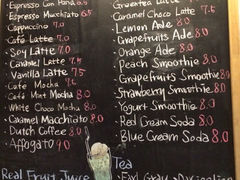 Espresso Con Pana 6.5
Espresso Macchiato 6.5
Cappuccino 7.0
Café Latte 7.0
Soy Latte 7.0
Caramel Latte 7.5
Vanilla Latte 7.5
Café Mocha 7.5
Café Mint Mocha 8.0
White Choco Mocha 8.0
Caramel Macchiato 8.0
Dutch Coffee 8.0
Affogato 9.0
Real Fruit Juice
Greentea Latte
Caramel Choco Latte 8.0
Lemon Ade 8.0
Grapefruits Ade 8.0
Orange Ade 8.0
Peach Smoothie 8.0
Grapefruits Smoothie 8.0
Strawberry Smoothie 8.0
Yogurt Smoothie 8.0
Red Cream Soda 8.0
Blue Cream Soda 8.0
Tea
Earl Gray